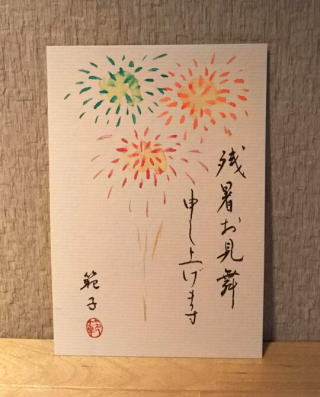 残暑お見舞
申し上げます
範子